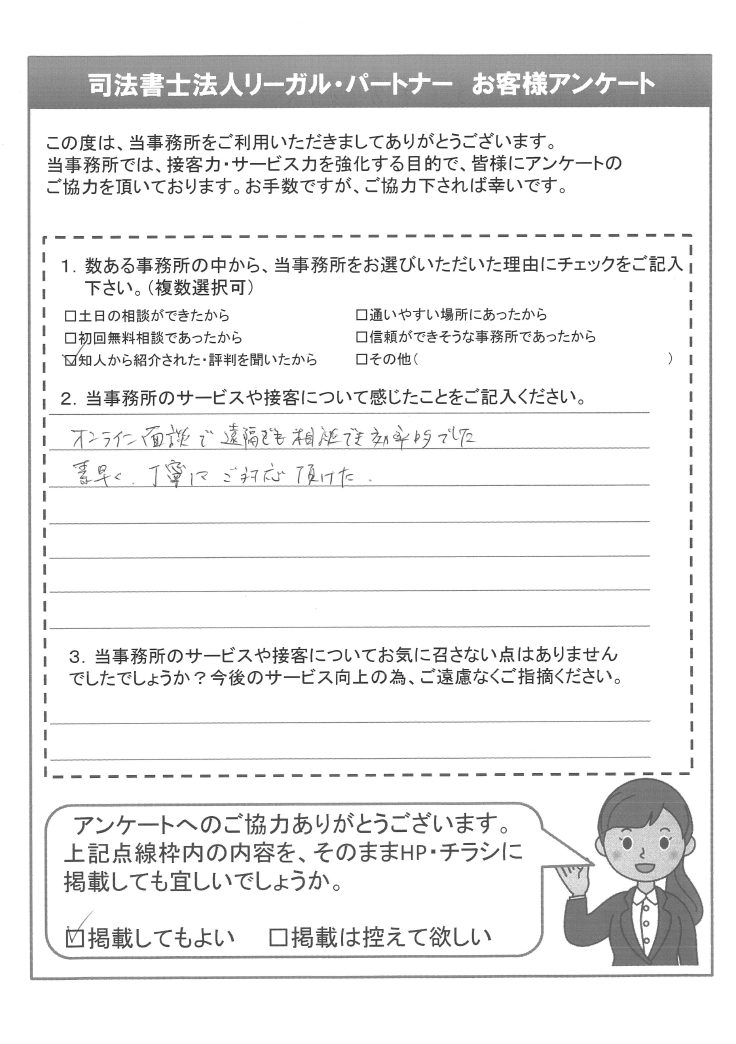 司法書士法人リーガル・パートナー　お客様アンケート
この度は、当事務所をご利用いただきましてありがとうございます。
当事務所では、接客力・サービス力を強化する目的で、皆様にアンケートの
ご協力を頂いております。お手数ですが、ご協力下されば幸いです。
1．数ある事務所の中から、当事務所をお選びいただいた理由にチェックをご記入
下さい。（複数選択可）
□土日の相談ができたから　□通いやすい場所にあったから
□初回無料相談であったから　□信頼ができそうな事務所であったから
☑知人から紹介された・評判を聞いたから　□その他（　）
2．当事務所のサービスや接客について感じたことをご記入ください。
オンライン面談で遠隔でも相談でき効率的でした
素早く、丁寧にご対応頂けた.
3．当事務所のサービスや接客についてお気に召さない点はありません
でしたでしょうか？今後のサービス向上の為、ご遠慮なくご指摘ください。
アンケートへのご協力ありがとうございます。
上記点線枠内の内容を、そのままHP・チラシに
掲載しても宜しいでしょうか。
☑掲載してもよい　□掲載は控えて欲しい